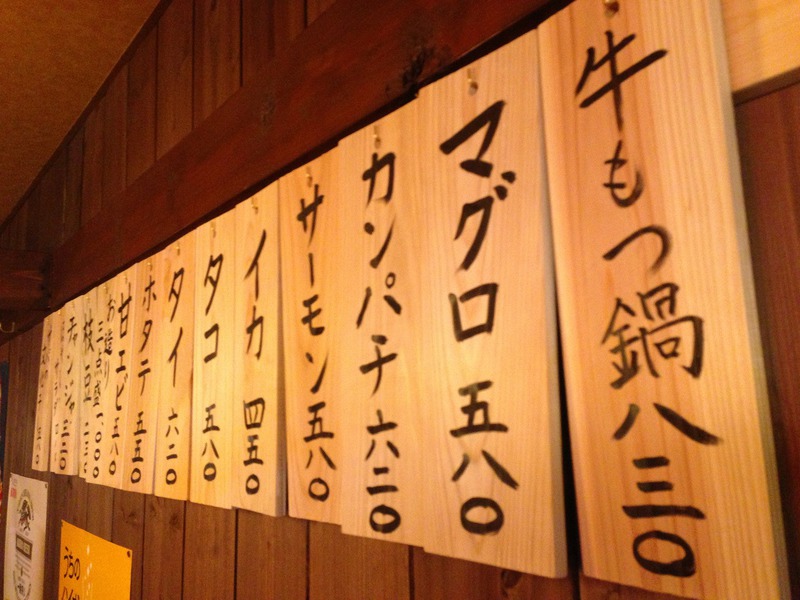 牛もつ鍋 八三〇
マグロ 五八〇
カンパチ 六二〇
サーモン 五八〇
イカ 四五〇
タコ 五八〇
タイ 六二〇
ホタテ 五五〇
甘エビ 五八〇
お造り
三点盛 一、〇〇〇
枝豆
チャンジャ
うちの